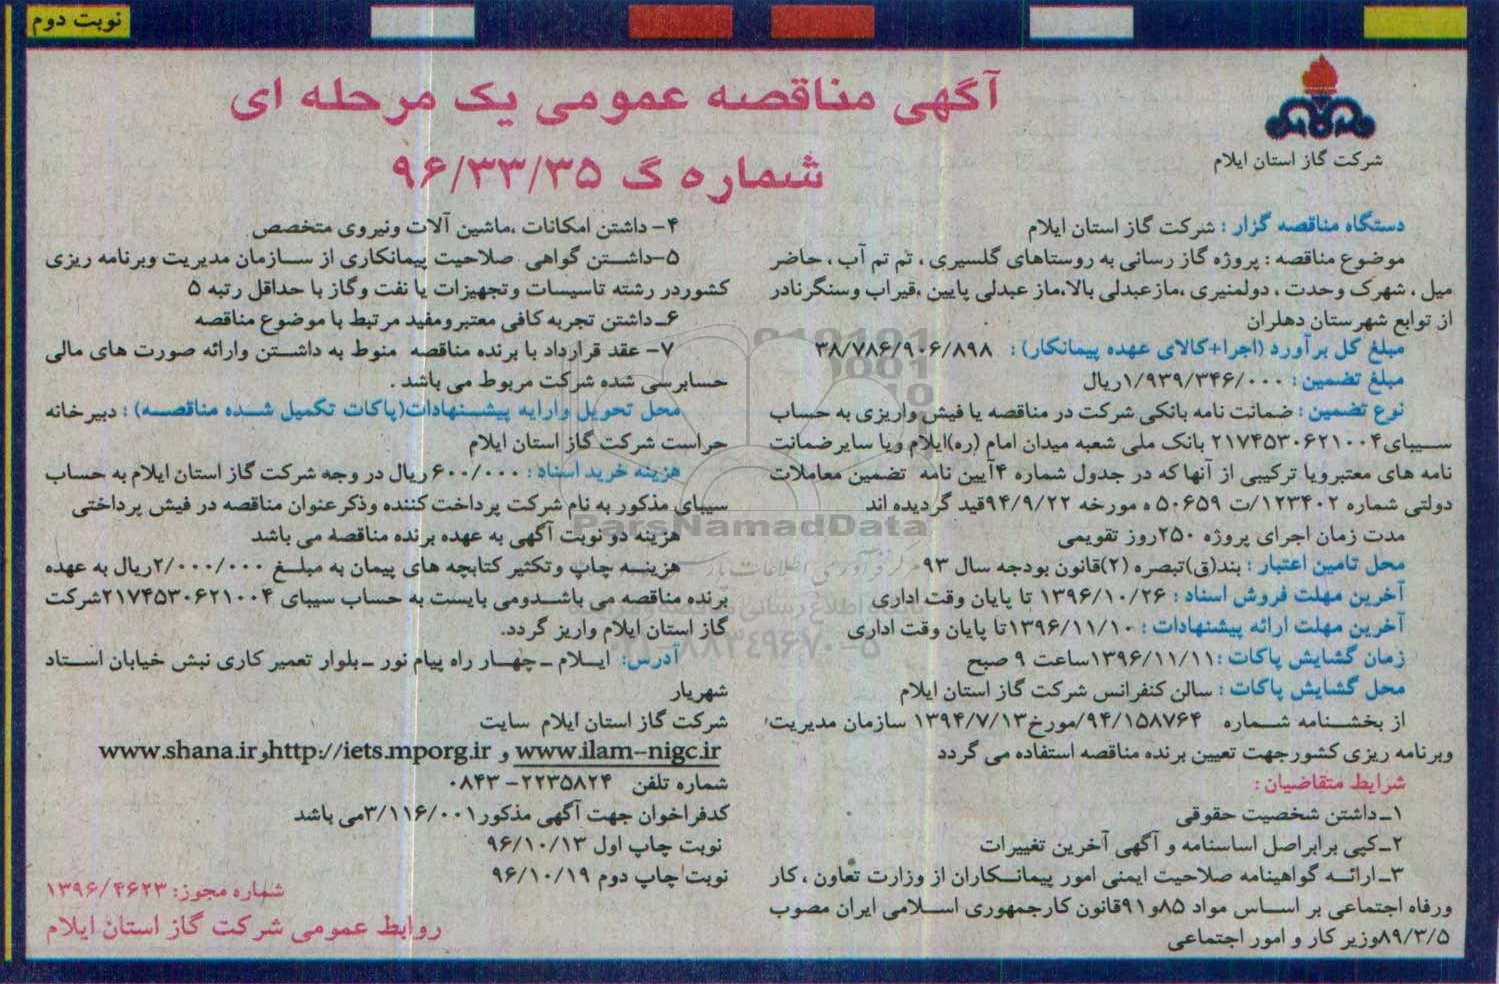 نوبت دوم
شرکت گاز استان ایلام
آگهی مناقصه عمومی یک مرحله ای
شماره گ ۹۶/۳۳/۳۵
دستگاه مناقصه گزار : شرکت گاز استان ایلام
موضوع مناقصه : پروژه گاز رسانی به روستاهای گلسیری ، تم تم آب ، حاضر
میل ، شهرک وحدت ، دولمنیری ،مازعبدلی بالا،ماز عبدلی پایین ،قیراب وسنگرنادر
از توابع شهرستان دهلران
مبلغ کل برآورد (اجرا+کالای عهده پیمانکار) : ۳۸/۷۸۶/۹۰۶/۸۹۸
مبلغ تضمین : ۱/۹۳۹/۳۴۶/۰۰۰ریال
نوع تضمین : ضمانت نامه بانکی شرکت در مناقصه یا فیش واریزی به حساب
سیبای۲۱۷۴۵۳۰۶۲۱۰۰۴ بانک ملی شعبه میدان امام (ره)ایلام ویا سایرضمانت
نامه های معتبرویا ترکیبی از آنها که در جدول شماره ۴آیین نامه تضمین معاملات
دولتی شماره ۱۲۳۴۰۲/ت ۵۰۶۵۹ ه مورخه ۹۴/۹/۲۲قید گردیده اند
مدت زمان اجرای پروژه ۲۵۰روز تقویمی
محل تامین اعتبار : بند(ق)تبصره (۲)قانون بودجه سال ۹۳
آخرین مهلت فروش اسناد : ۱۳۹۶/۱۰/۲۶ تا پایان وقت اداری
آخرین مهلت ارائه پیشنهادات : ۱۳۹۶/۱۱/۱۰تا پایان وقت اداری
زمان گشایش پاکات :۱۳۹۶/۱۱/۱۱ساعت ۹ صبح
محل گشایش پاکات : سالن کنفرانس شرکت گاز استان ایلام
از بخشنامه شماره ۹۴/۱۵۸۷۶۴/مورخ۱۳۹۴/۷/۱۳ سازمان مدیریت
وبرنامه ریزی کشورجهت تعیین برنده مناقصه استفاده می گردد
شرایط متقاضیان :
۱ـ داشتن شخصیت حقوقی
۲ـ کپی برابراصل اساسنامه و آگهی آخرین تغییرات
۳ـ ارائه گواهینامه صلاحیت ایمنی امور پیمانکاران از وزارت تعاون ، کار
ورفاه اجتماعی بر اساس مواد ۸۵و۹۱قانون کارجمهوری اسلامی ایران مصوب
۸۹/۳/۵وزیر کار و امور اجتماعی
۴- داشتن امکانات ،ماشین آلات ونیروی متخصص
۵-داشتن گواهی صلاحیت پیمانکاری از سازمان مدیریت وبرنامه ریزی
کشوردر رشته تاسیسات وتجهیزات یا نفت وگاز با حداقل رتبه ۵
۶ـ داشتن تجربه کافی معتبرومفید مرتبط با موضوع مناقصه
۷- عقد قرارداد با برنده مناقصه منوط به داشتن وارائه صورت های مالی
حسابرسی شده شرکت مربوط می باشد .
محل تحویل وارایه پیشنهادات(پاکات تکمیل شده مناقصه) : دبیرخانه
حراست شرکت گاز استان ایلام
هزینه خرید اسناد : ۶۰۰/۰۰۰ ریال در وجه شرکت گاز استان ایلام به حساب
سیبای مذکور به نام شرکت پرداخت کننده وذکرعنوان مناقصه در فیش پرداختی
هزینه دو نوبت آگهی به عهده برنده مناقصه می باشد
هزینه چاپ وتکثیر کتابچه های پیمان به مبلغ ۲/۰۰۰/۰۰۰ریال به عهده
برنده مناقصه می باشدومی بایست به حساب سیبای ۲۱۷۴۵۳۰۶۲۱۰۰۴شرکت
گاز استان ایلام واریز گردد.
آدرس: ایلام - چهار راه پیام نور - بلوار تعمیر کاری نبش خیابان استاد
شهریار
شرکت گاز استان ایلام سایت
www.ilam-nigc.ir و http://iets.mporg.irوwww.shana.ir
شماره تلفن ۲۲۳۵۸۲۴ - ۰۸۴۳
کدفراخوان جهت آگهی مذکور۳/۱۱۶/۰۰۱می باشد
نوبت چاپ اول ۹۶/۱۰/۱۳
نوبت چاپ دوم ۹۶/۱۰/۱۹
شماره مجوز: ۱۳۹۶/۴۶۲۳
روابط عمومی شرکت گاز استان ایلام
ParsNamadData